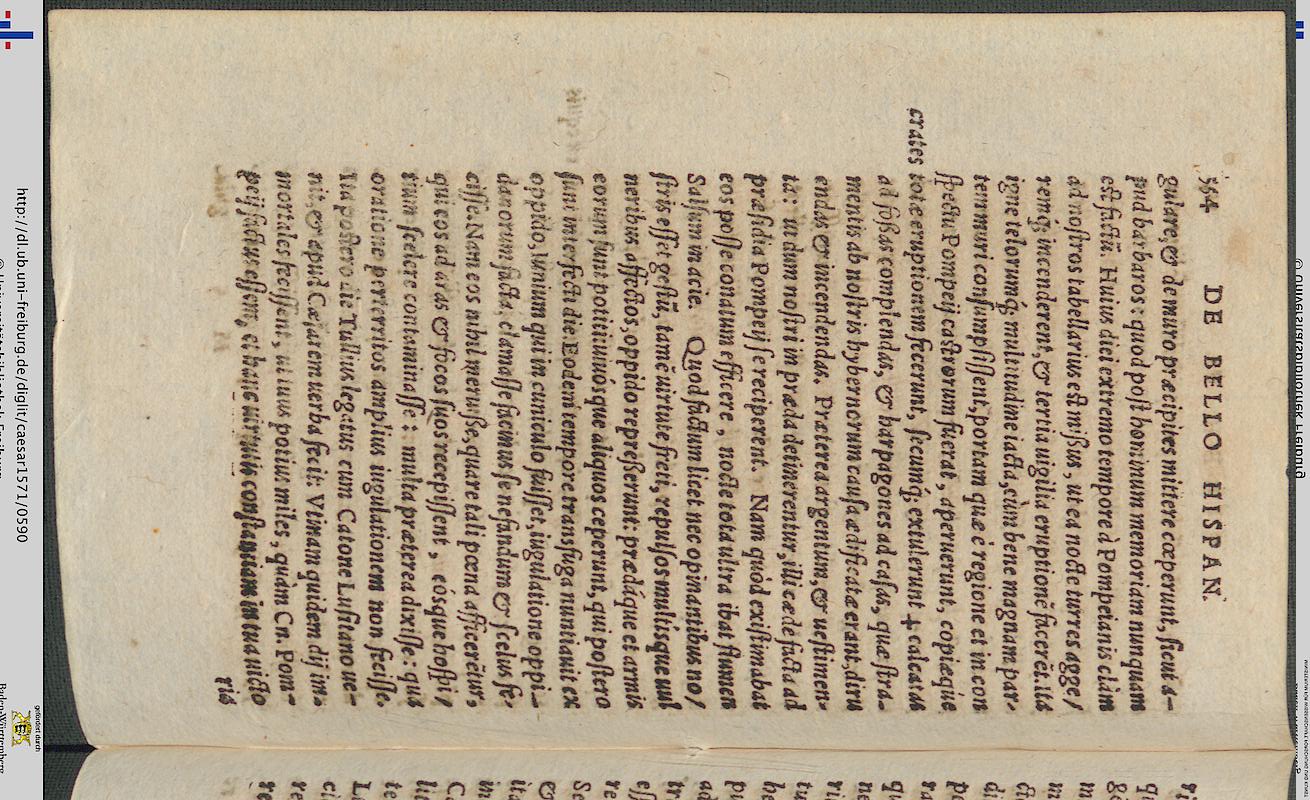 564 DE BELLO HISPAN.
gulare, & de muro præcipites mittere cœperunt, sicut a-
pud barbaros: quod post hominum memoriam nunquam
est factũ. Huius diei extremo tempore à Pompeianis clàm
ad nostros tabellarius est missus, ut ea nocte turres agge/
remq́; incenderent, & tertia uigilia eruptionẽ facerẽt. ita
igne telorumq́; multitudine iacta, cùm bene magnam par-
tem muri consumpsissent, portam quæ è regione et in con
spectu Pompeij castrorum fuerat, aperuerunt, copiæq́ue
crates totæ eruptionem fecerunt, secumq́; extulerunt + calcatas
ad fossas complendas, & harpagones ad casas, quæ stra-
mentis ab nostris hybernorum causa ædificatæ erant, diru
endas & incendendas. Præterea argentum, & uestimen-
ta: ut dum nostri in præda detinerentur, illi cæde facta ad
præsidia Pompeij se reciperent. Nam quòd existimabat
eos posse conatum efficere, nocte tota ultra ibat flumen
Salsum in acie. Quod factum licet nec opinantibus no/
stris esset gestũ, tamẽ uirtute freti, repulsos multísque uul
neribus affectos, oppido represserunt: prædáque et armis
eorum sunt potiti: uiuósque aliquos ceperunt, qui postero
sunt interfecti die. Eodem tempore transfuga nuntiauit ex
oppido, Iunium qui in cuniculo fuisset, iugulatione oppi-
danorum facta, clamasse facinus se nefandum & scelus fe-
cisse. Nam eos nihil meruisse, quare tali pœna afficerẽtur,
qui eos ad aras & focos suos recepissent, eósque hospi/
tium scelere contaminasse: multa præterea dixisse: qua
oratione perterritos amplius iugulationem non fecisse.
Ita postero die Tullius legatus cum Catone Lusitano ue-
nit, & apud Cæsarem uerba fecit: Vtinam quidem dij im-
mortales fecissent, ut tuus potius miles, quàm Cn. Pom-
peij factus essem, et hanc uirtutis constantiam in tua uicto
ria
http://dl.ub.uni-freiburg.de/diglit/caesar1571/0590
gefördert durch
Baden-Württemberg